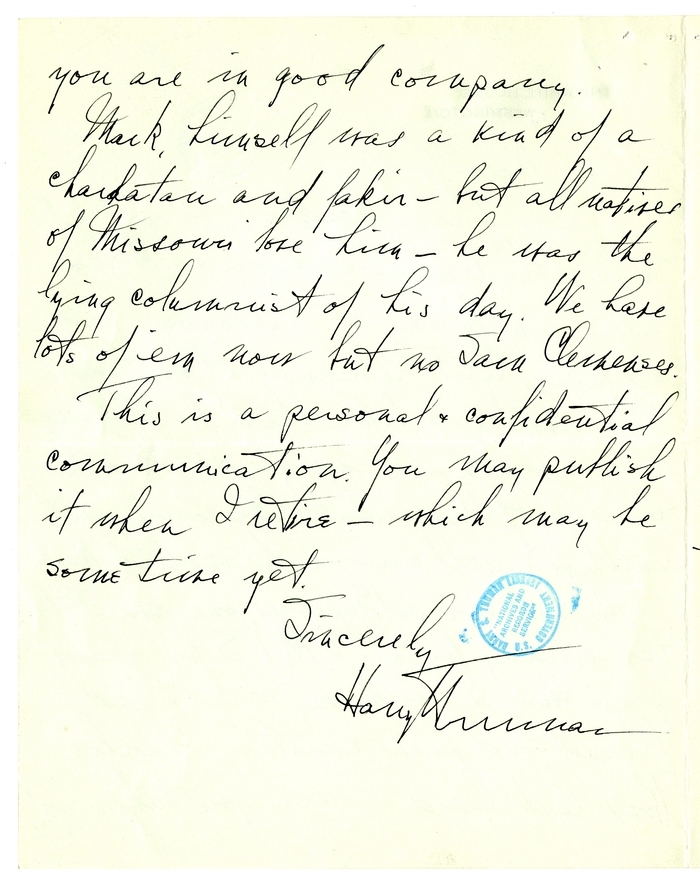 you are in good company.
Mark, himself was a kind of a
charlatan and fakir – but all natives
of Missouri love him – he was the
lying columnist of his day. We have
lots of 'em now but no Sam Clemenses.
This is a personal & confidential
communication. You may publish
it when I retire – which may be
sometime yet.
Sincerely
Harry Truman
"NATIONAL
ARCHIVES AND
RECORDS
SERVICE"